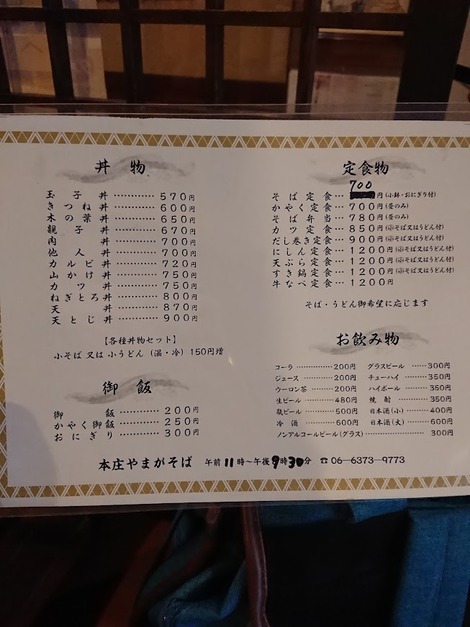 丼物
玉子丼 ………… 570円
きつね丼 ………… 600円
木の葉丼 ………… 650円
親子丼 ………… 670円
肉丼 ………… 700円
他人丼 ………… 700円
カルビ丼 ………… 720円
山かけ丼 ………… 750円
カツ丼 ………… 750円
ねぎとろ丼 ………… 800円
天丼 ………… 870円
天とじ丼 ………… 900円
【各種丼物セット】
小そば 又は 小うどん (温・冷) 150円増
御飯
御飯 ………… 200円
かやく御飯 ………… 250円
おにぎり ………… 300円
定食物
700
そば定食… 円 (小鉢・おにぎり付)
かやく定食… 700円 (昼のみ)
そば弁当… 780円 (昼のみ)
カツ定食… 850円 (小そば又はうどん付)
だし巻き定食… 900円 (小そば又はうどん付)
にしん定食… 1200円 (小そば又はうどん付)
天ぷら定食… 1200円 (小そば又はうどん付)
すき鍋定食… 1200円 (小そば又はうどん付)
牛なべ定食… 1200円
そば・うどん御希望に応じます
お飲み物
コーラ ………… 200円
ジュース ………… 200円
ウーロン茶 ………… 200円
生ビール ………… 480円
瓶ビール ………… 500円
冷酒 ………… 600円
グラスビール ……… 300円
チューハイ ……… 350円
ハイボール ……… 350円
焼酎 ……… 350円
日本酒(小) ……… 400円
日本酒(大) ……… 600円
ノンアルコールビール(グラス) ………… 300円
本庄やまがそば 午前11時〜午後9時30分 ☎06-6373-9773